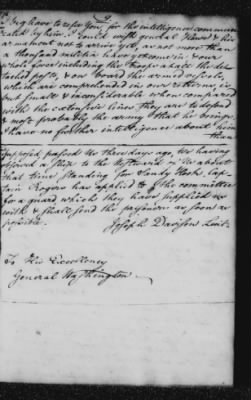 I beg leave to refer you for the intelligence communi
cated by him. I could wish general Howe & his
armament not to arrive yet, as not more than
a thousand militia have yet come in, & our
whole force including the troops at all the de
tached posts, & on board the armed vessels,
which are comprehended in our returns is
but small & inconsiderable when compared
with the extensive lines they are to defend
& most probably the army that he brings.
I have no further intelligence about him
than
supposed passed us three days ago. We having
a ship to the Eastward of us about
that time standing for Sandy Hook. Cap
tain Rogers has applied to the committee
for a guard which they have supplied us
with & shall send the prisoners as soon as
possible.
Joseph Davison Lieut.
To His Excellency
General Washington